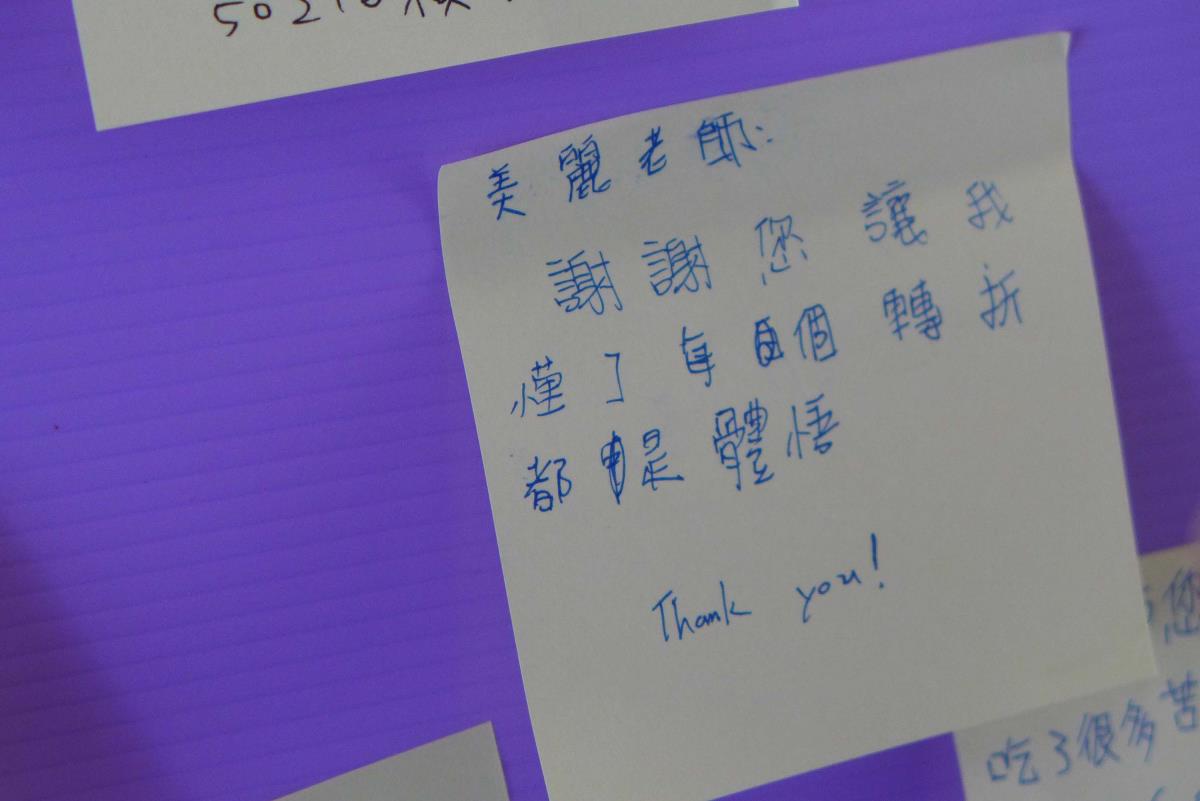 50210
美麗老師:
謝謝您讓我
懂了每個轉折
都是體悟
Thank you!
您
吃了很多苦